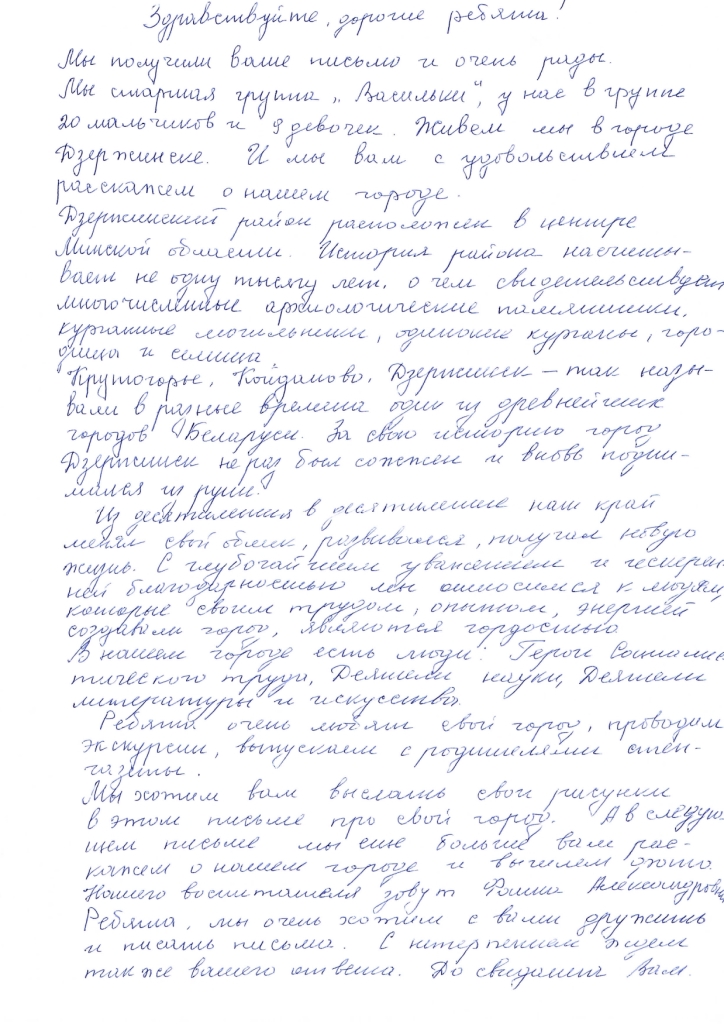 Здравствуйте, дорогие ребята!
Мы получили ваше письмо и очень рады.
Мы старшая группа „Васильки“, у нас в группе
20 мальчиков и 9 девочек. Живем мы в городе
Дзержинске. И мы вам с удовольствием
расскажем о нашем городе.
Дзержинский район расположен в центре
Минской области. История района насчиты-
вает не одну тысячу лет, о чем свидетельствуют
многочисленные археологические памятники,
курганные могильники, одинокие курганы, горо-
дища и селища
Крутогорье, Койданово, Дзержинск – так назы-
вали в разные времена один из древнейших
городов Беларуси. За свою историю город
Дзержинск не раз был сожжен и вновь подни-
мался из руин.
Из десятилетия в десятилетие наш край
менял свой облик, развивался, получал новую
жизнь. С глубочайшим уважением и искрен-
ней благодарностью мы относимся к людям,
которые своим трудом, опытом, энергией
создавали город, являются гордостью
В нашем городе есть люди: Герои Социалис
тического труда, Деятели науки, Деятели
литературы и искусства.
Ребята очень любят свой город, проводим
экскурсии, выпускаем с родителями стен-
газеты.
Мы хотим вам выслать свои рисунки
в этом письме про свой город. А в следую
щем письме мы еще больше вам рас-
кажем о нашем городе и вышлем фото.
Нашего воспитателя зовут Александровна
Ребята, мы очень хотим с вами дружить
и писать письма. С нетерпением ждем
также вашего ответа. До свидания Вам.